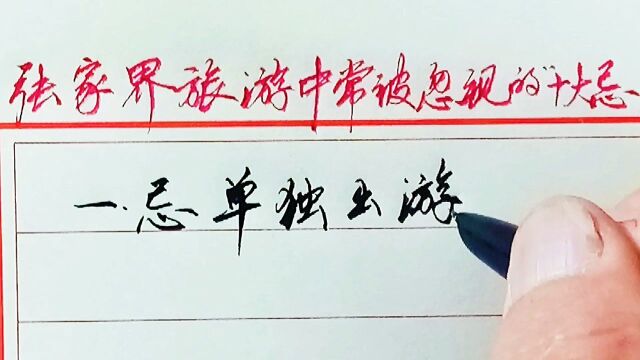 张家界旅游中常被忽视的"十大忌
一.忌单独出游